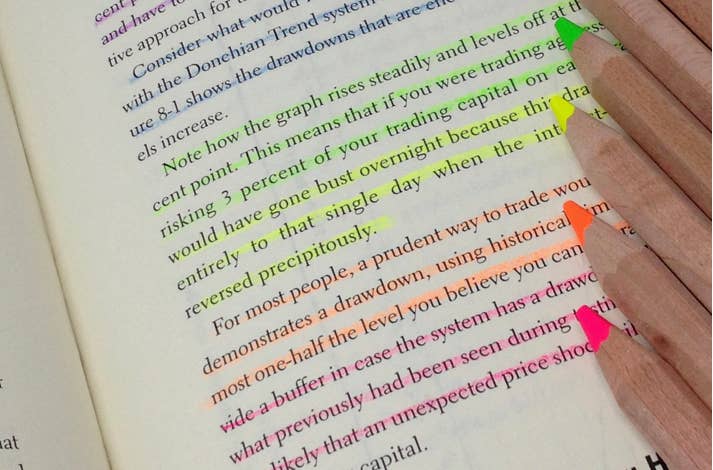 cent
and have to
tive approach for
Consider what would
with the Donchian Trend system
ure 8-1 shows the drawdowns that are
els increase.
Note how the graph rises steadily and levels off at th
cent point. This means that if you were trading ag
risking 3 percent of your trading capital on ea
would have gone bust overnight because this dra
entirely to that single day when the int
reversed precipitously.
For most people, a prudent way to trade wou
demonstrates a drawdown, using historical im
most one-half the level you believe you can
vide a buffer in case the system has a drawd
what previously had been seen during
likely that an unexpected price shoc
capital.
at
H